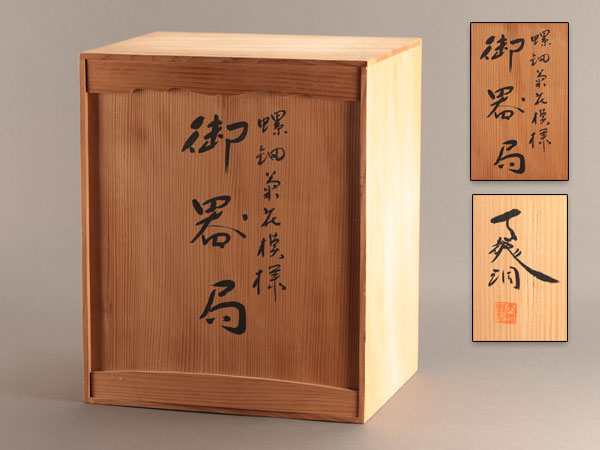 螺鈿菊花模様
御器局
螺鈿菊花模様
御器局